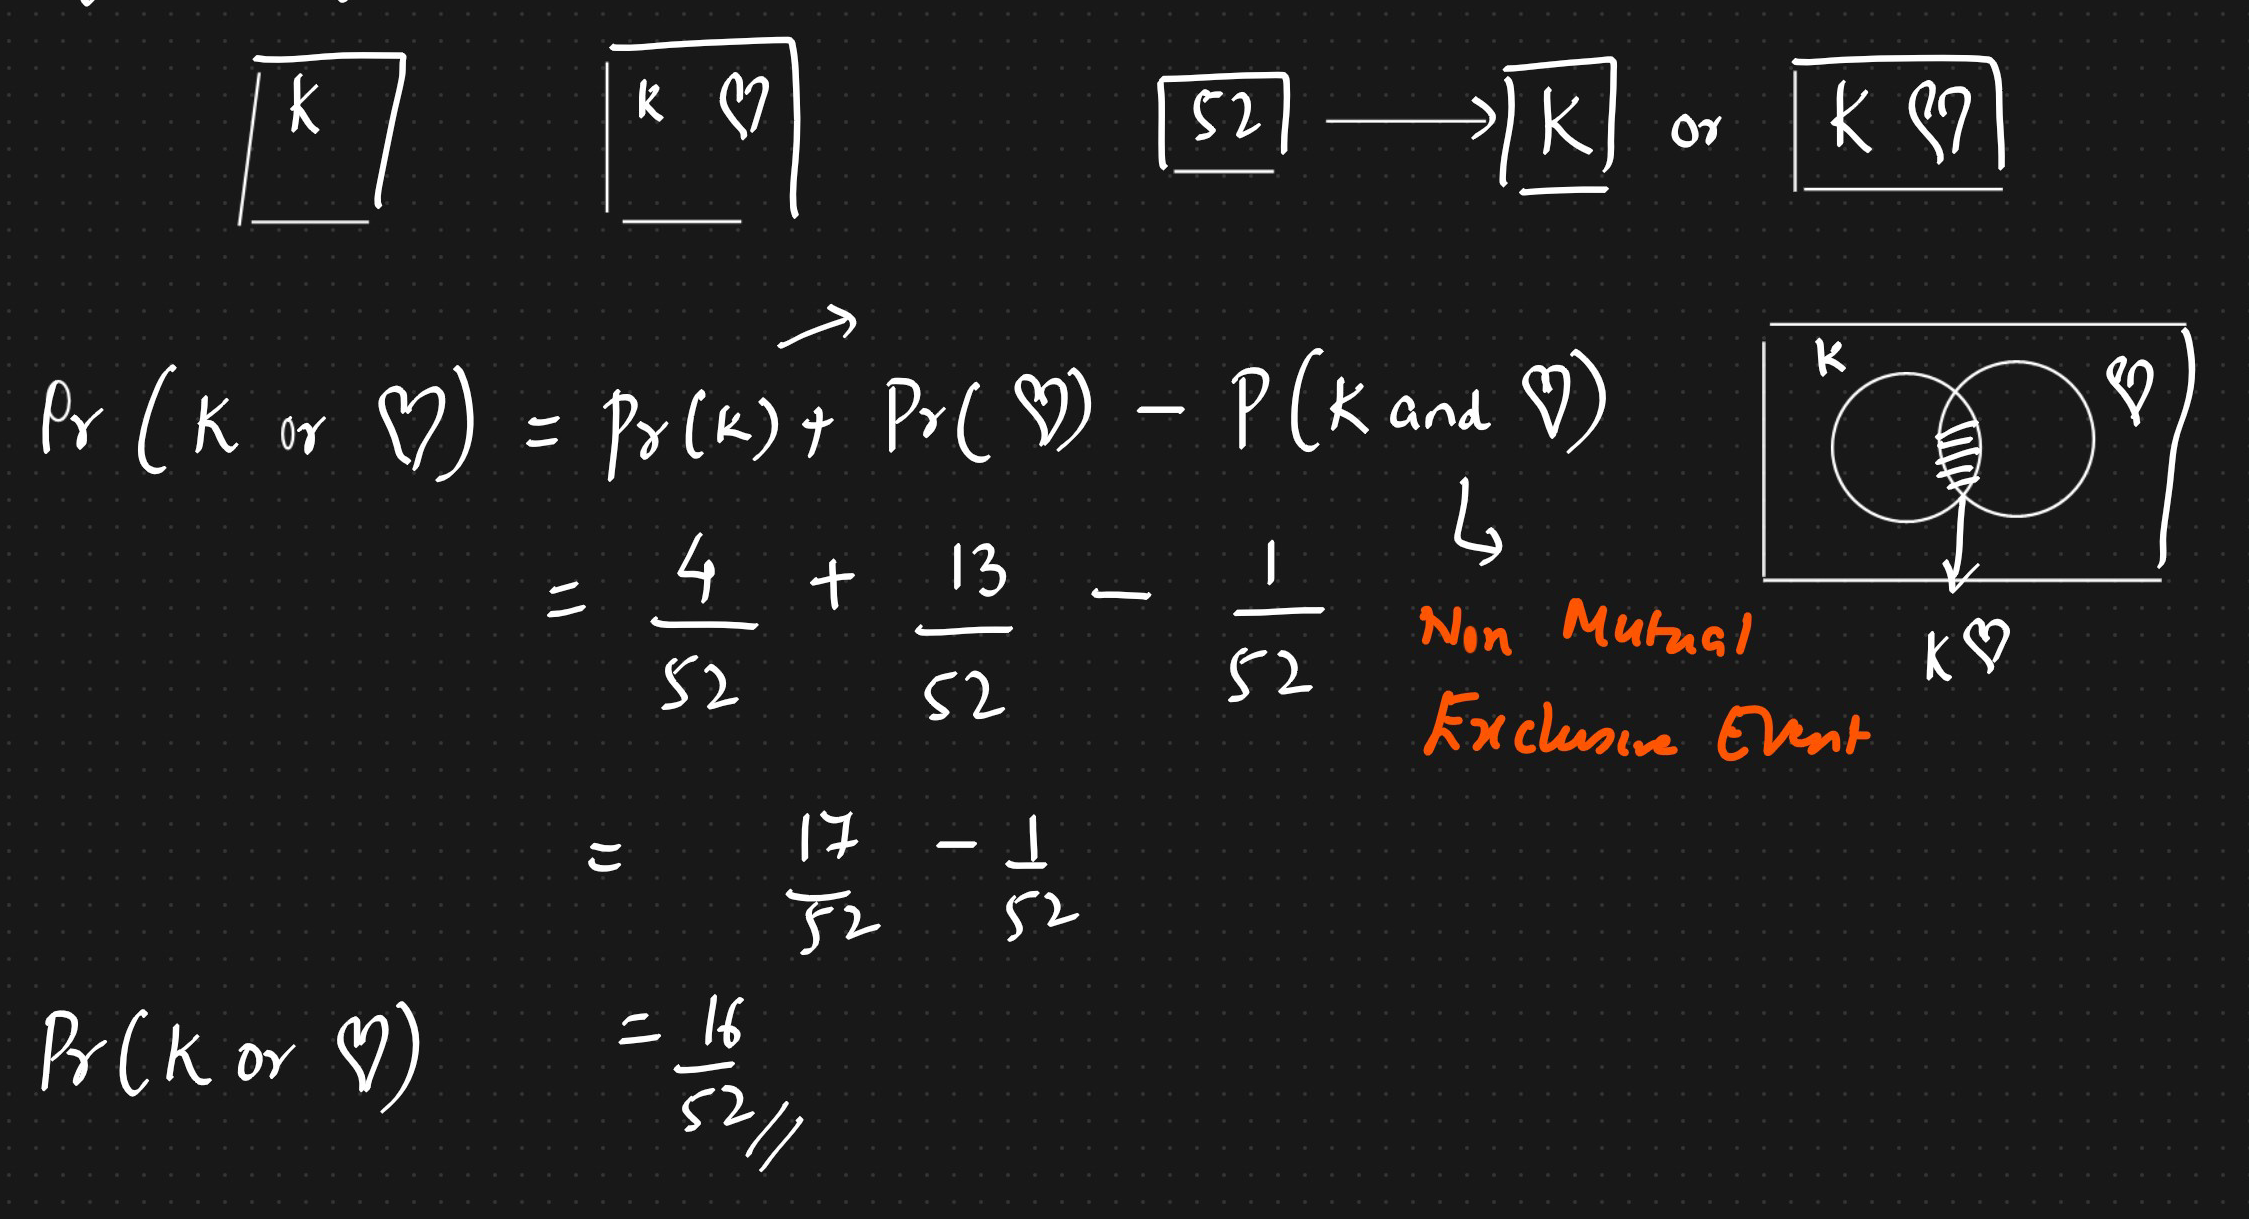 K    K ♡    52 → K or K ♡
Pr (K or ♡) = Pr(K) + Pr(♡) − P(K and ♡)
K ♡
= 4/52 + 13/52 − 1/52
Non Mutual
Exclusive Event
K♡
= 17/52 − 1/52
Pr(K or ♡) = 16/52 //